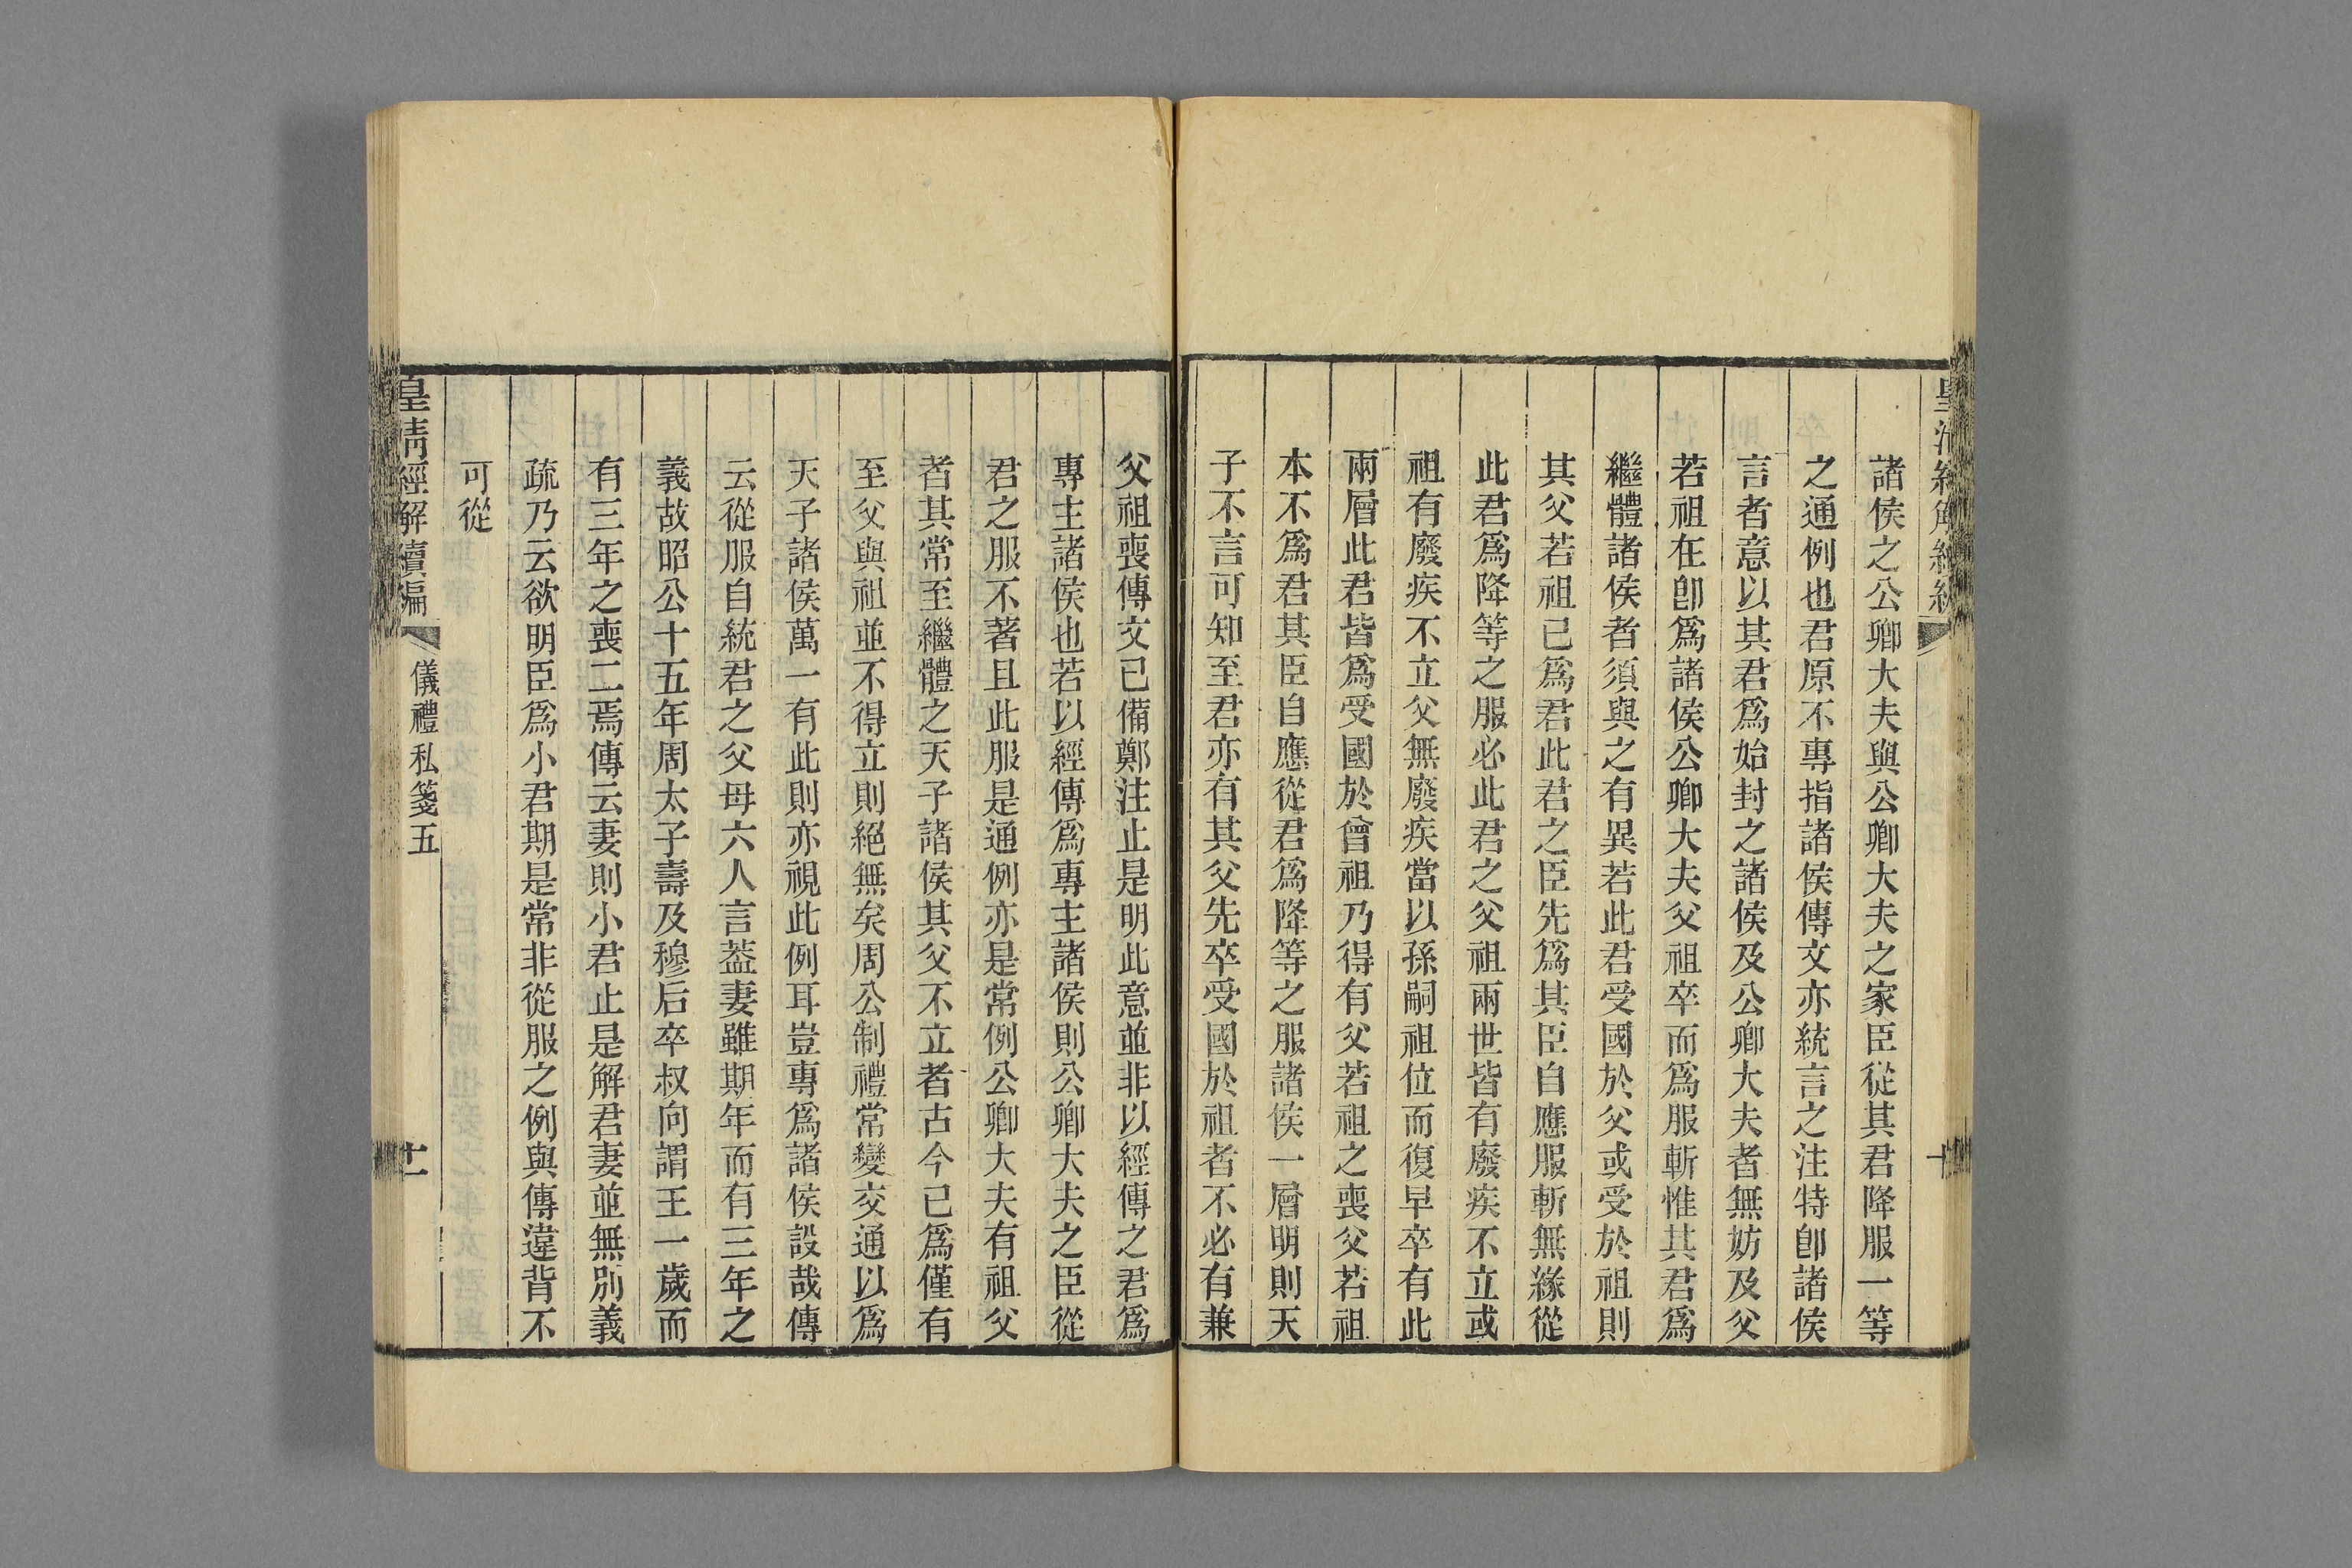 諸侯之公卿大夫與公卿大夫之家臣從其君降服一等
之通例也君原不專指諸侯傳文亦統言之注特卽諸侯
言者意以其君爲始封之諸侯及公卿大夫者無妨及父
若祖在卽爲諸侯公卿大夫父祖卒而爲服斬惟其君爲
繼體諸侯者須與之有異若此君受國於父或受於祖則
其父若祖已爲君此君之臣先爲其臣自應服斬無緣從
此君爲降等之服必此君之父祖兩世皆有廢疾不立或
祖有廢疾不立父無廢疾當以孫嗣祖位而復早卒有此
兩層此君皆爲受國於曾祖乃得有父若祖之喪父若祖
本不爲君其臣自應從君爲降等之服諸侯一層明則天
子不言可知至君亦有其父先卒受國於祖者不必有兼
父祖喪傳文已備鄭注止是明此意並非以經傳之君爲
專主諸侯也若以經傳爲專主諸侯則公卿大夫之臣從
君之服不著且此服是通例亦是常例公卿大夫有祖父
者其常至繼體之天子諸侯其父不立者古今已爲僅有
至父與祖並不得立則絕無矣周公制禮常變交通以爲
天子諸侯萬一有此則亦視此例耳豈專爲諸侯設哉傳
云從服自統君之父母六人言葢妻雖期年而有三年之
義故昭公十五年周太子壽及穆后卒叔向謂王一歲而
有三年之喪二焉傳云妻則小君止是解君妻並無別義
疏乃云欲明臣爲小君期是常非從服之例與傳違背不
可從
皇清經解續編
儀禮私箋五
十一